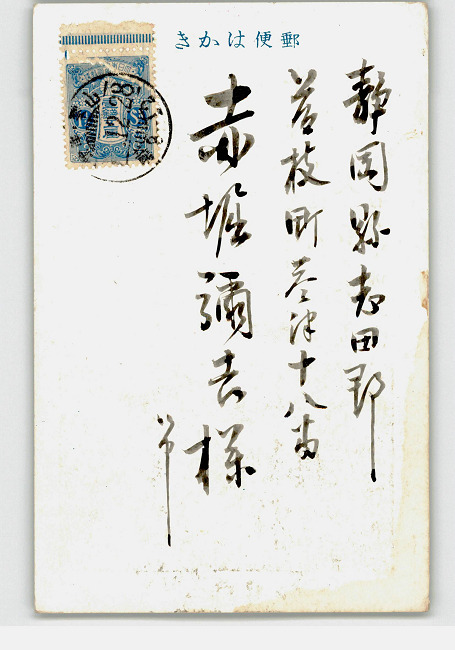 きかは便郵
静岡縣志田郡
藤枝町木津十八番
赤堀彌吉様